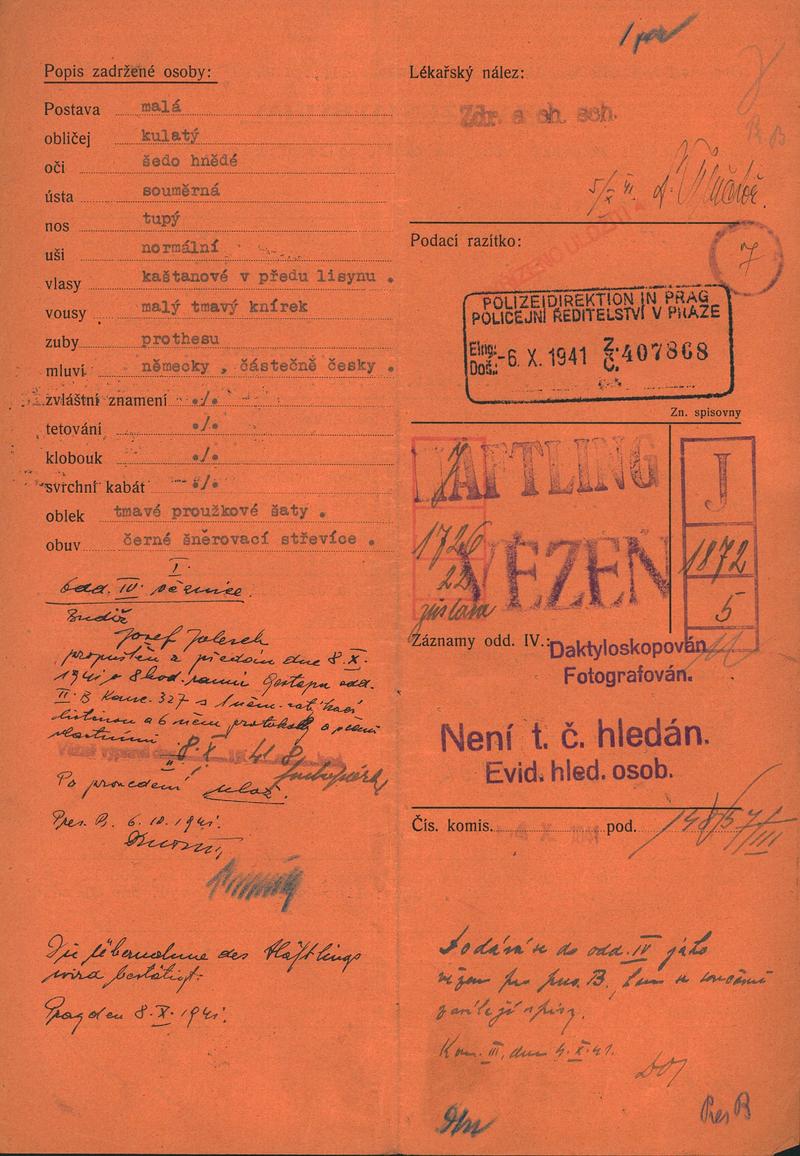 Popis zadržené osoby:
Postava malá
obličej kulatý
oči šedo hnědé
ústa souměrná
nos tupý
uši normální
vlasy kaštanové v předu lisynu .
vousy malý tmavý knírek
zuby prothesu
mluví německy , částečně česky .
zvláštní znamení ./.
tetování ./.
klobouk ./.
svrchní kabát ./.
oblek tmavé proužkové šaty .
obuv černé šněrovací střevíce .
I.
odd. IV. věznice.
Josef
propuštěn z dne 8. X.
1941 o 8 hod. ranní Gestapu odd.
II. B Komc. 327 s
listinou a 6 něm. protokoly o
vlastními
8. X 41 8
Po provedení ulož.
Pres. B. 6.10.1941.
Die Übernahme des Häftlings
wird bestätigt:
Prag den 8. X. 1941.
Lékařský nález:
Zdr. a ch. sch.
5/X 41.
Podací razítko:
7
POLIZEIDIREKTION IN PRAG
POLICEJNÍ ŘEDITELSTVÍ V PRAZE
Eing.: Doš.: -6. X. 1941 Z. Č. 407868
Zn. spisovny
HÄFTLING
VĚZEŇ
7
1726
22
zůstává
J
1872
5
Záznamy odd. IV.:
Daktyloskopován
Fotografován.
Není t. č. hledán.
Evid. hled. osob.
Čís. komis. pod. 148/57/III
Dodává se do odd. IV jako
vězen pro pres. B,
spisy.
Kom. III, dne 4. X. 41.
Pres B